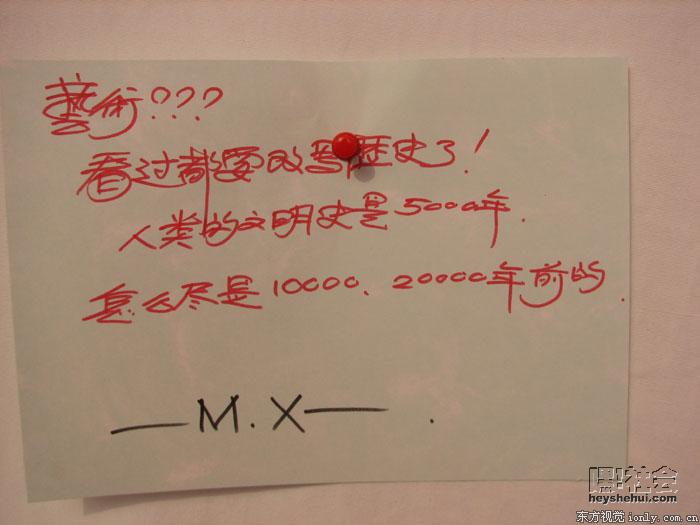 藝術???
看过都要改写歷史了!
人类的文明史是5000年.
怎么尽是10000、20000年前的.
—M.X— .
黑社会
heyshehui.com
东方视觉 ionly.com.cn